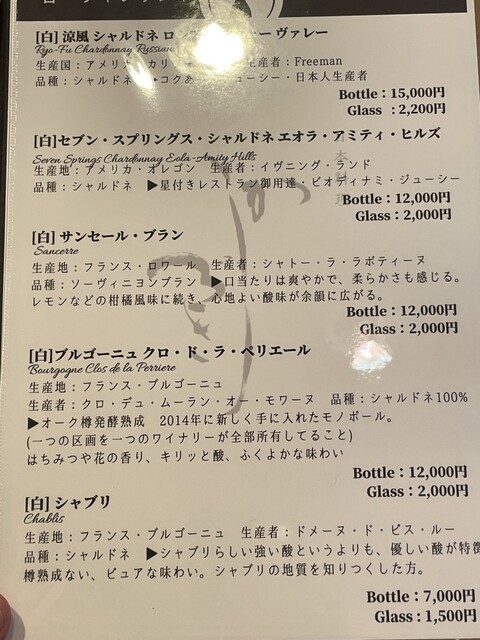 [白] 涼風 シャルドネ ロ ー ヴァレー
Ryo-Fu Chardonnay Russian
生産国：アメリカ カリ 生産者：Freeman
品種：シャルドネ ・コクあ ューシー・日本人生産者
Bottle：15,000円
Glass ：2,200円
[白]セブン・スプリングス・シャルドネ エオラ・アミティ・ヒルズ
Seven Springs Chardonnay Eola-Amity Hills
生産地：アメリカ・オレゴン 生産者：イヴニング・ランド
品種：シャルドネ ▶星付きレストラン御用達・ビオディナミ・ジューシー
Bottle：12,000円
Glass：2,000円
[白] サンセール・ブラン
Sancerre
生産地：フランス・ロワール 生産者：シャトー・ラ・ラボティーヌ
品種：ソーヴィニヨンブラン ▶口当たりは爽やかで、柔らかさも感じる。
レモンなどの柑橘風味に続き、心地よい酸味が余韻に広がる。
Bottle：12,000円
Glass：2,000円
[白]ブルゴーニュ クロ・ド・ラ・ペリエール
Bourgogne Clos de la Perriere
生産地：フランス・ブルゴーニュ
生産者：クロ・デュ・ムーラン・オー・モワーヌ 品種：シャルドネ100%
▶オーク樽発酵熟成 2014年に新しく手に入れたモノポール。
(一つの区画を一つのワイナリーが全部所有してること)
はちみつや花の香り、キリッと酸、ふくよかな味わい
Bottle：12,000円
Glass：2,000円
[白] シャブリ
Chablis
生産地：フランス・ブルゴーニュ 生産者：ドメーヌ・ド・ビス・ルー
品種：シャルドネ ▶シャブリらしい強い酸というよりも、優しい酸が特徴
樽熟成ない、ピュアな味わい。シャブリの地質を知りつくした方。
Bottle：7,000円
Glass：1,500円